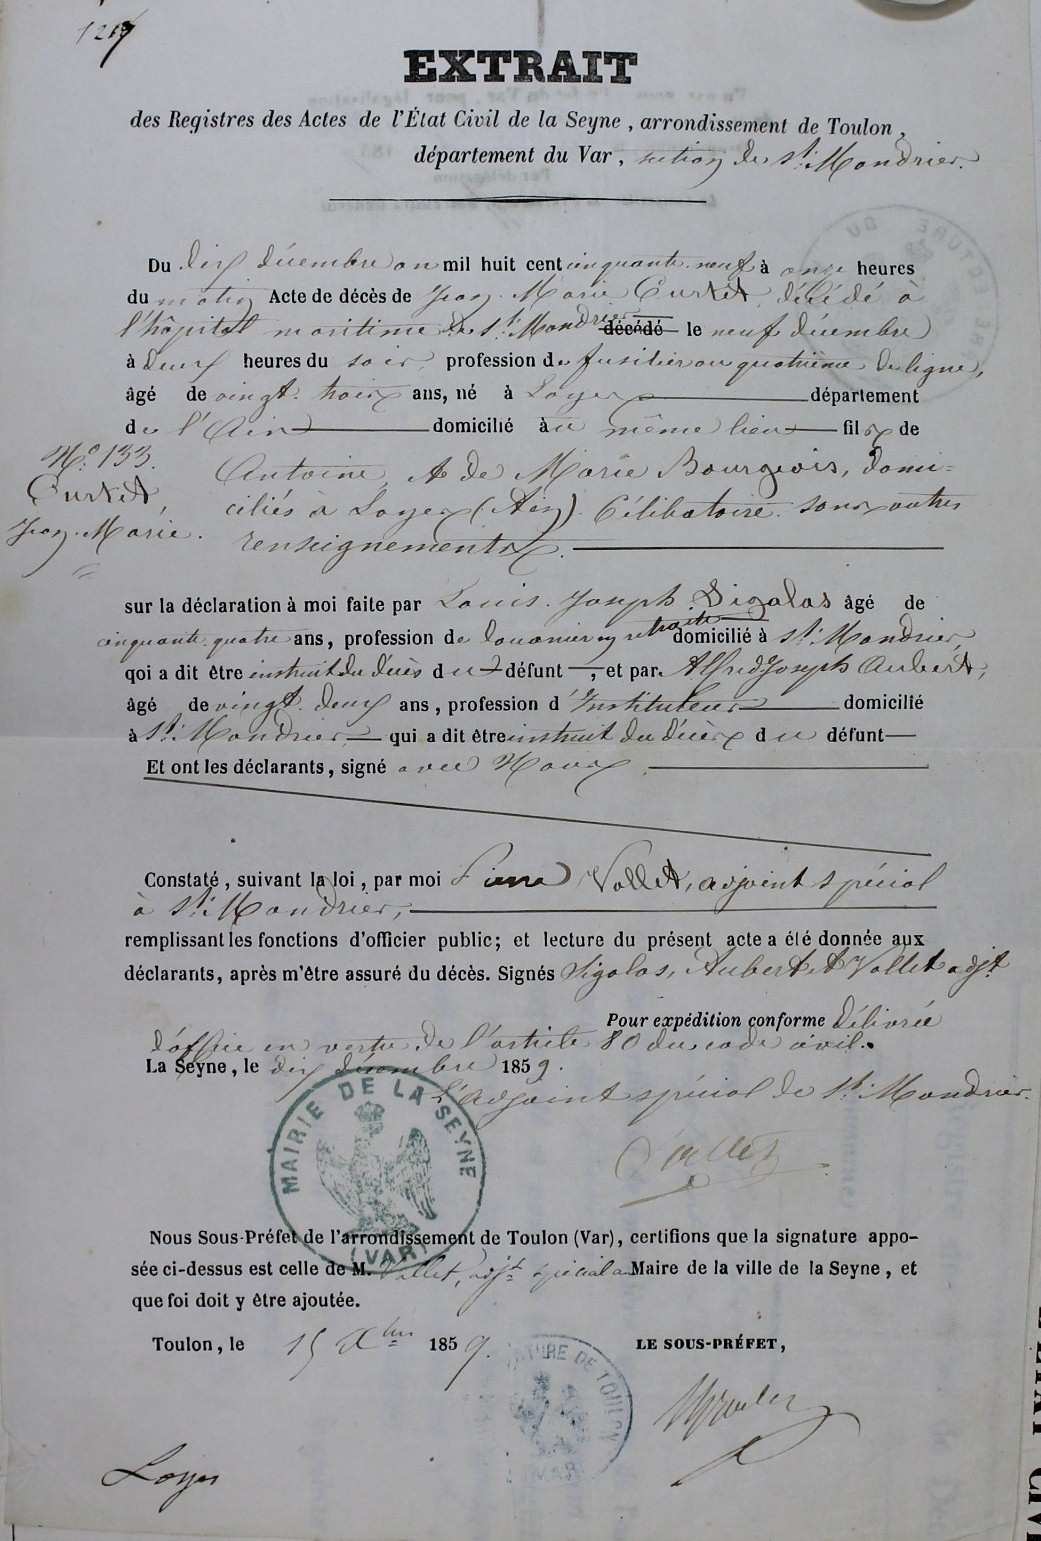 EXTRAIT
des Registres des Actes de l'État Civil de la Seyne, arrondissement de Toulon,
département du Var, section de St. Mandrier.
Du dix décembre an mil huit cent cinquante neuf à onze heures
du matin Acte de décès de Jean Marie Curtet, décédé à
l'hôpital maritime de St. Mandrier décédé le neuf décembre
à deux heures du soir, profession de fusilier au quatrième de ligne,
âgé de vingt trois ans, né à Loyes département
de l'Ain domicilié au même lieu fils de
No. 133.
Curtet
Jean Marie.
Antoine, & de Marie Bourgeois, domi-
ciliés à Loyes (Ain). Célibataire sans autres
renseignements.
sur la déclaration à moi faite par Louis Joseph Sigalas âgé de
cinquante quatre ans, profession de douanier en retraite domicilié à St. Mandrier
qoi a dit être instruit du décès du défunt, et par Alfred Joseph Aubert,
âgé de vingt deux ans, profession d'Instituteur domicilié
à St. Mandrier qui a dit être instruit du décès du défunt
Et ont les déclarants, signé avec Nous.
Constaté, suivant la loi, par moi Pierre Vallet, adjoint spécial
à St. Mandrier,
remplissant les fonctions d'officier public; et lecture du présent acte a été donnée aux
déclarants, après m'être assuré du décès. Signés Sigalas, Aubert & Vallet adjt.
Pour expédition conforme Délivrée
d'office en vertu de l'article 80 du code civil.
La Seyne, le dix décembre 1859.
L'adjoint spécial de St. Mandrier.
Vallet
MAIRIE DE LA SEYNE
(VAR)
Nous Sous-Préfet de l'arrondissement de Toulon (Var), certifions que la signature appo-
sée ci-dessus est celle de M. Vallet, adjt. spécial au Maire de la ville de la Seyne, et
que foi doit y être ajoutée.
Toulon, le 15 Xbre 1859.
LE SOUS-PRÉFET,
Loyes